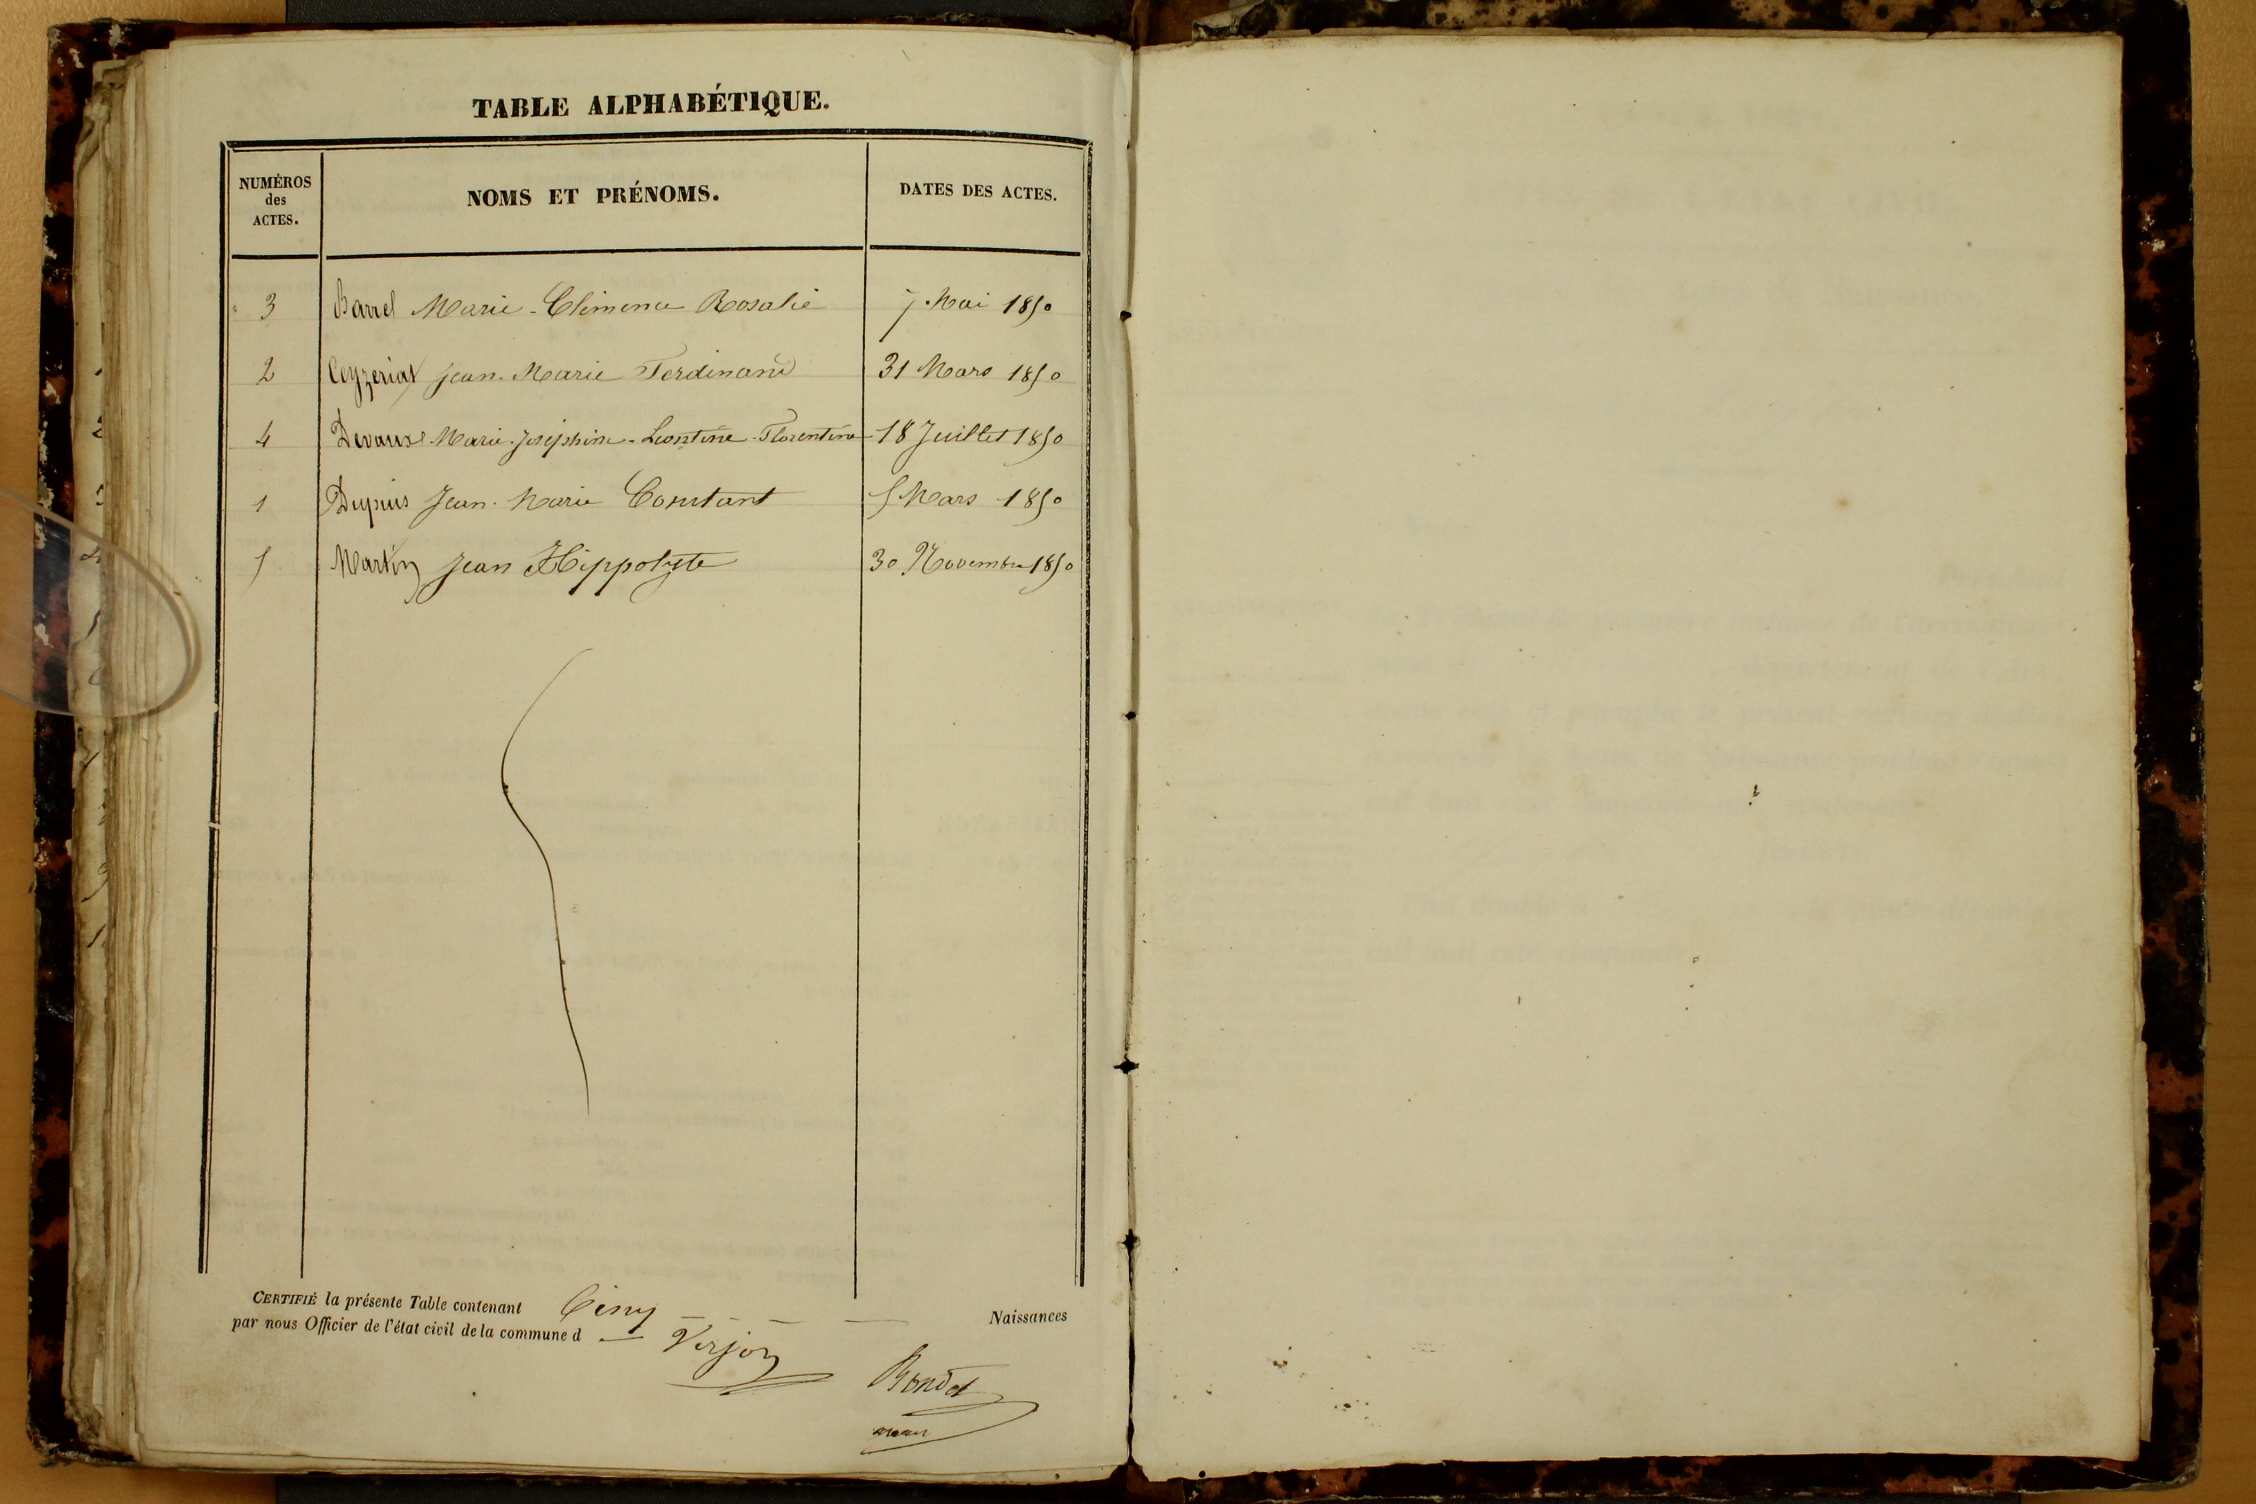 TABLE ALPHABÉTIQUE.
NUMÉROS
des
ACTES.
NOMS ET PRÉNOMS.
DATES DES ACTES.
3 Barrel Marie-Climence Rosalie 7 Mai 1850
2 Ceyzeriat Jean-Marie Ferdinand 31 Mars 1850
4 Devaux Marie-Joséphine-Leontine-Florentine 18 Juillet 1850
1 Dupuis Jean-Marie Constant 5 Mars 1850
5 Martin Jean Hippolyte 30 Novembre 1850
CERTIFIÉ la présente Table contenant Cinq Naissances
par nous Officier de l'état civil de la commune d Verjon
Bondet
maire